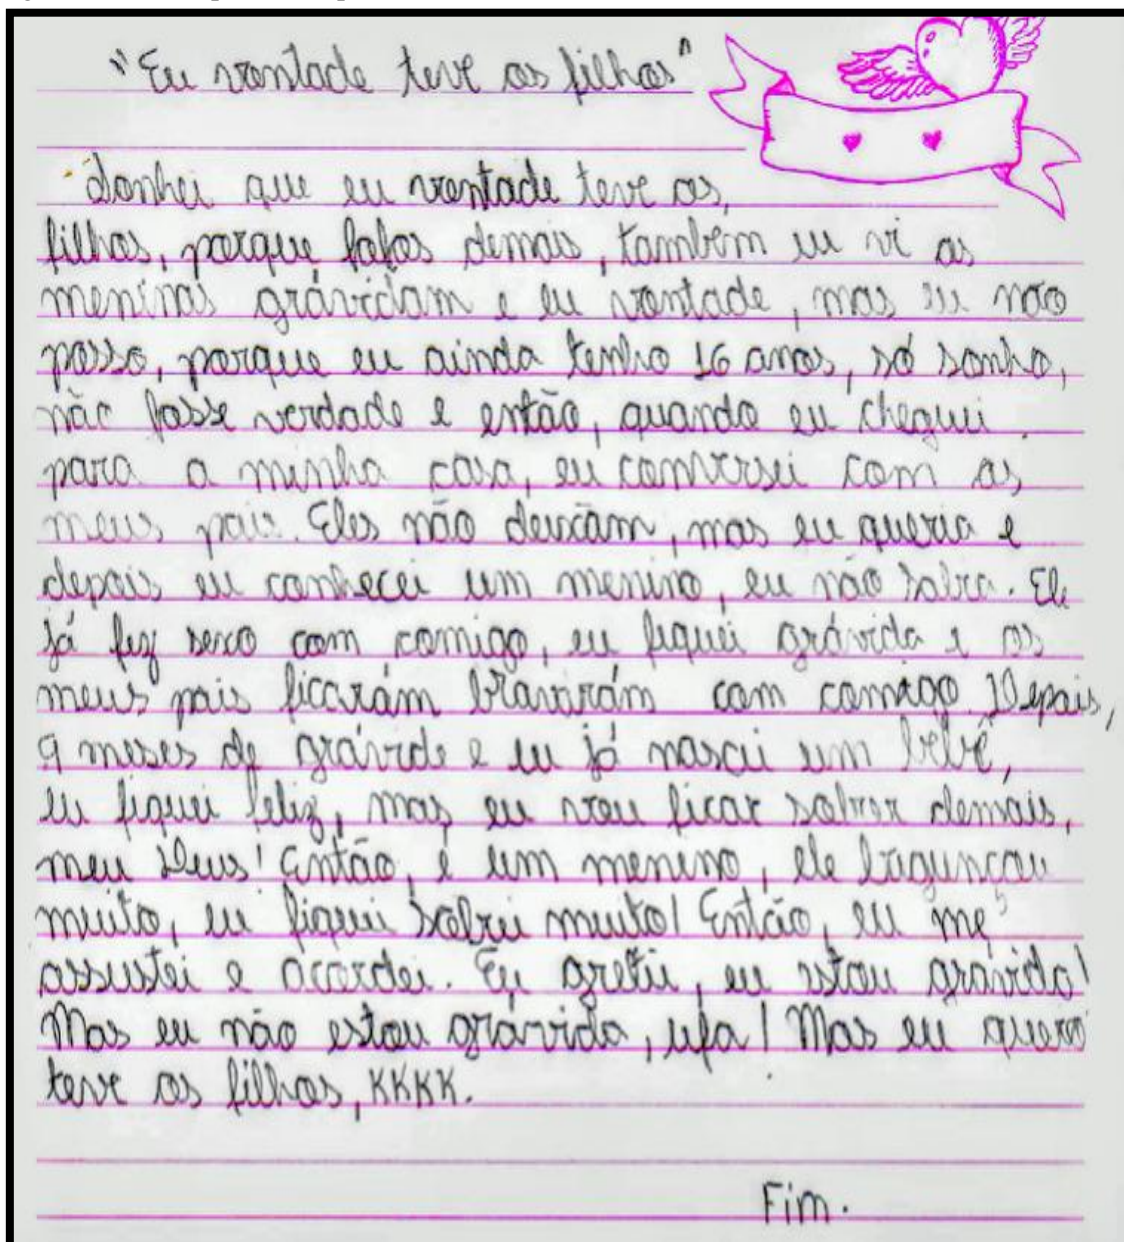 "Eu vontade teve os filhos"
Sonhei que eu vontade teve os
filhos, porque fofos demais, também eu vi as
meninas grávidam e eu vontade, mas eu não
posso, porque eu ainda tenho 16 anos, só sonho,
não fosse verdade e então, quando eu cheguei
para a minha casa, eu conversei com os
meus pais. Eles não deixam, mas eu queria e
depois eu conhecei um menino, eu não sabia. Ele
já fez sexo com comigo, eu fiquei grávida e os
meus pais ficarám bravirám com comigo. Depois,
9 meses de grávide e eu já nasci um bebê,
eu fiquei feliz, mas eu vou ficar demais,
meu Deus! Então, é um menino, ele bagunçou
muito, eu fiquei muito! Então, eu me
assustei e acordei. Eu gretei, eu estou grávida!
Mas eu não estou grávida, ufa! Mas eu quero
teve os filhos, KKKK.
Fim.